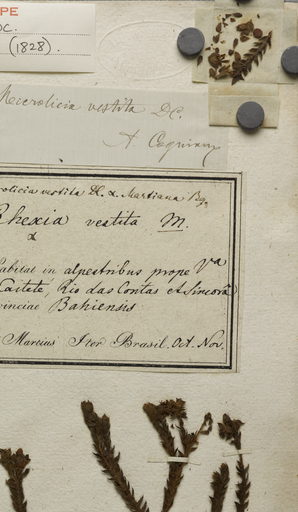 PE
DC.
(1828).
Microlicia vestita DC.
A Cogniaux
rolicia vestita DC. α Martiana
Rhexia vestita M.
α
Habitat in alpestribus prope Va
Caiteté, Rio das Contas et Sincorá
vinciae Bahiensis
Martius Iter Brasil. Oct. Nov.